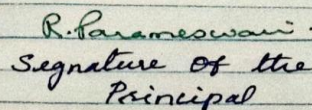 R. Parameswari.
Segnature of the
Principal